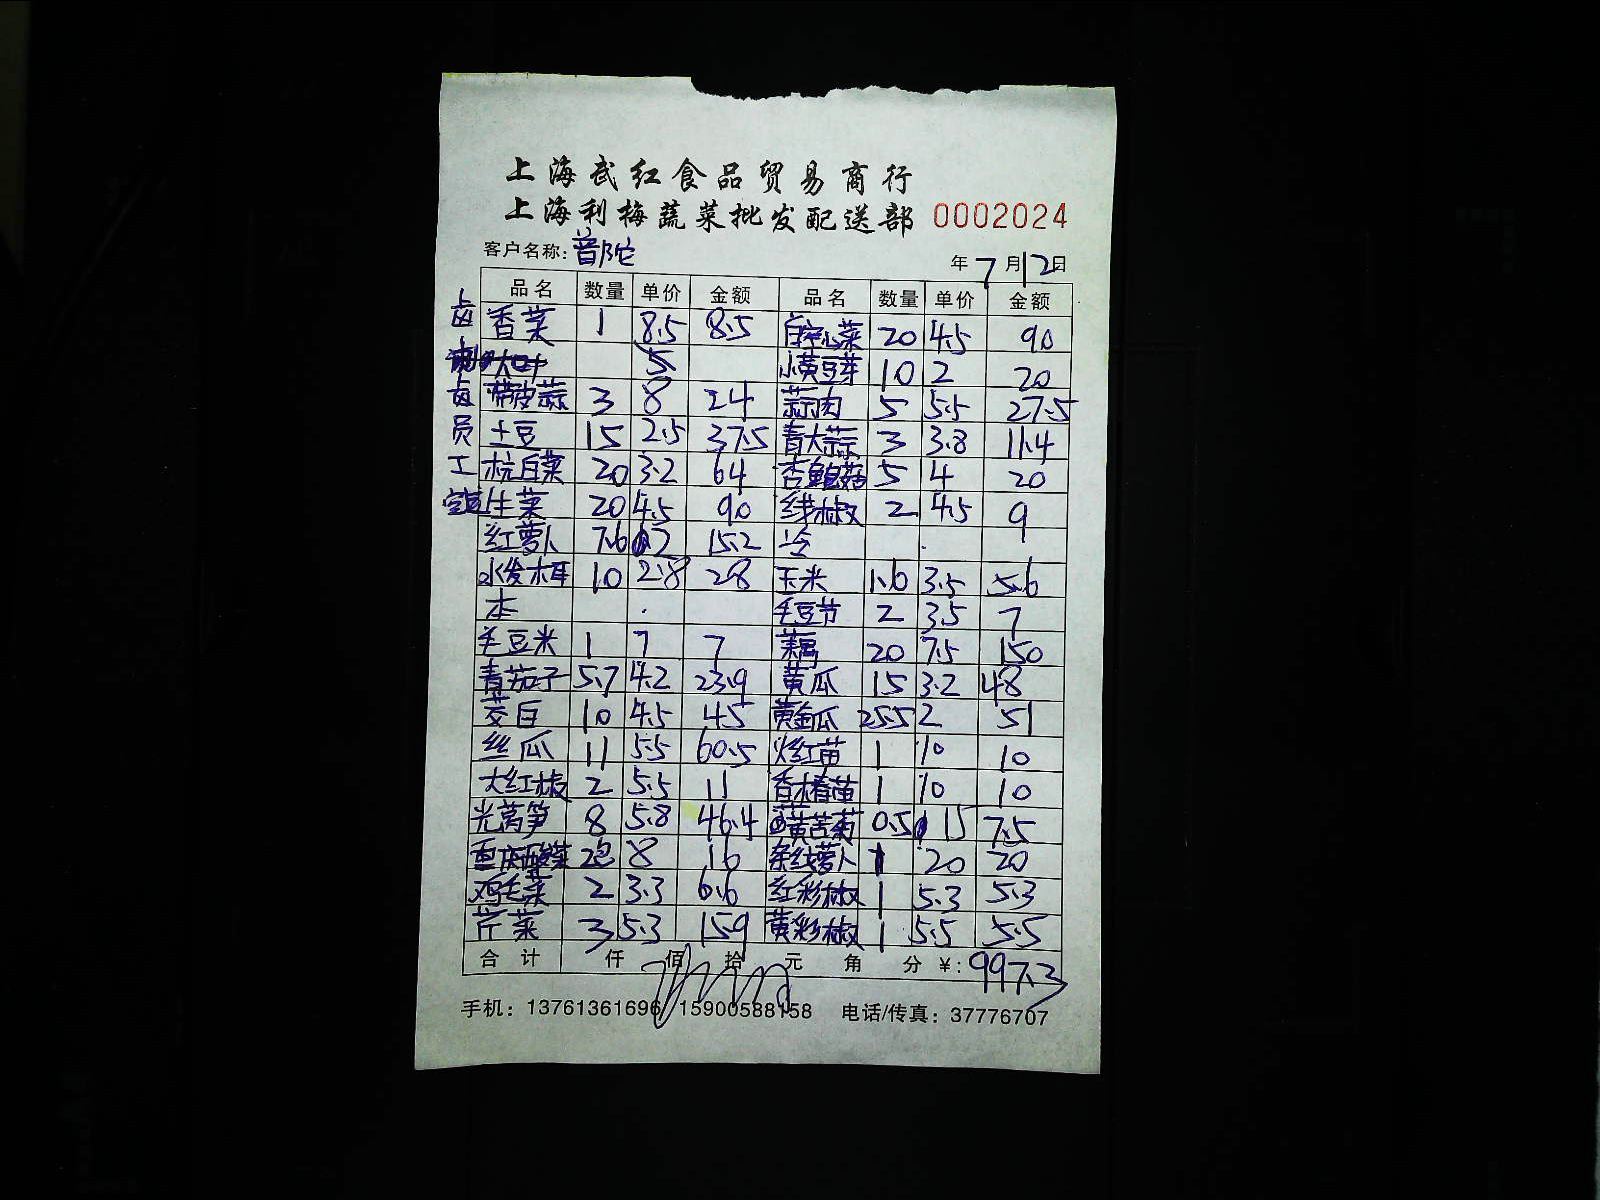 上海武红食品贸易商行
上海利梅蔬菜批发配送部 0002024
客户名称: 普陀 年 7 月 12 日
品名 数量 单价 金额 品名 数量 单价 金额
卤 香菜 1 8.5 8.5 白空心菜 20 4.5 90
5 小黄豆芽 10 2 20
卤 带皮蒜 3 8 24 蒜肉 5 5.5 27.5
员 土豆 15 2.5 37.5 青大蒜 3 3.8 11.4
工 杭白菜 20 3.2 64 杏鲍菇 5 4 20
生菜 20 4.5 90 线椒 2 4.5 9
红萝卜 7.6 2 15.2 冷
水发木耳 10 2.8 28 玉米 1.6 3.5 5.6
本 毛豆节 2 3.5 7
毛豆米 1 7 7 藕 20 7.5 150
青茄子 5.7 4.2 23.9 黄瓜 15 3.2 48
茭白 10 4.5 45 黄金瓜 25.5 2 51
丝瓜 11 5.5 60.5 红苗 1 10 10
大红椒 2 5.5 11 香椿苗 1 10 10
光莴笋 8 5.8 46.4 黄苦菊 0.5 15 7.5
重庆酸菜 2包 8 16 萝卜 1 20 20
鸡毛菜 2 3.3 6.6 红彩椒 1 5.3 5.3
芹菜 3 5.3 15.9 黄彩椒 1 5.5 5.5
合计 仟 佰 拾 元 角 分 ¥: 997.3
手机: 13761361696 15900588158 电话/传真: 37776707